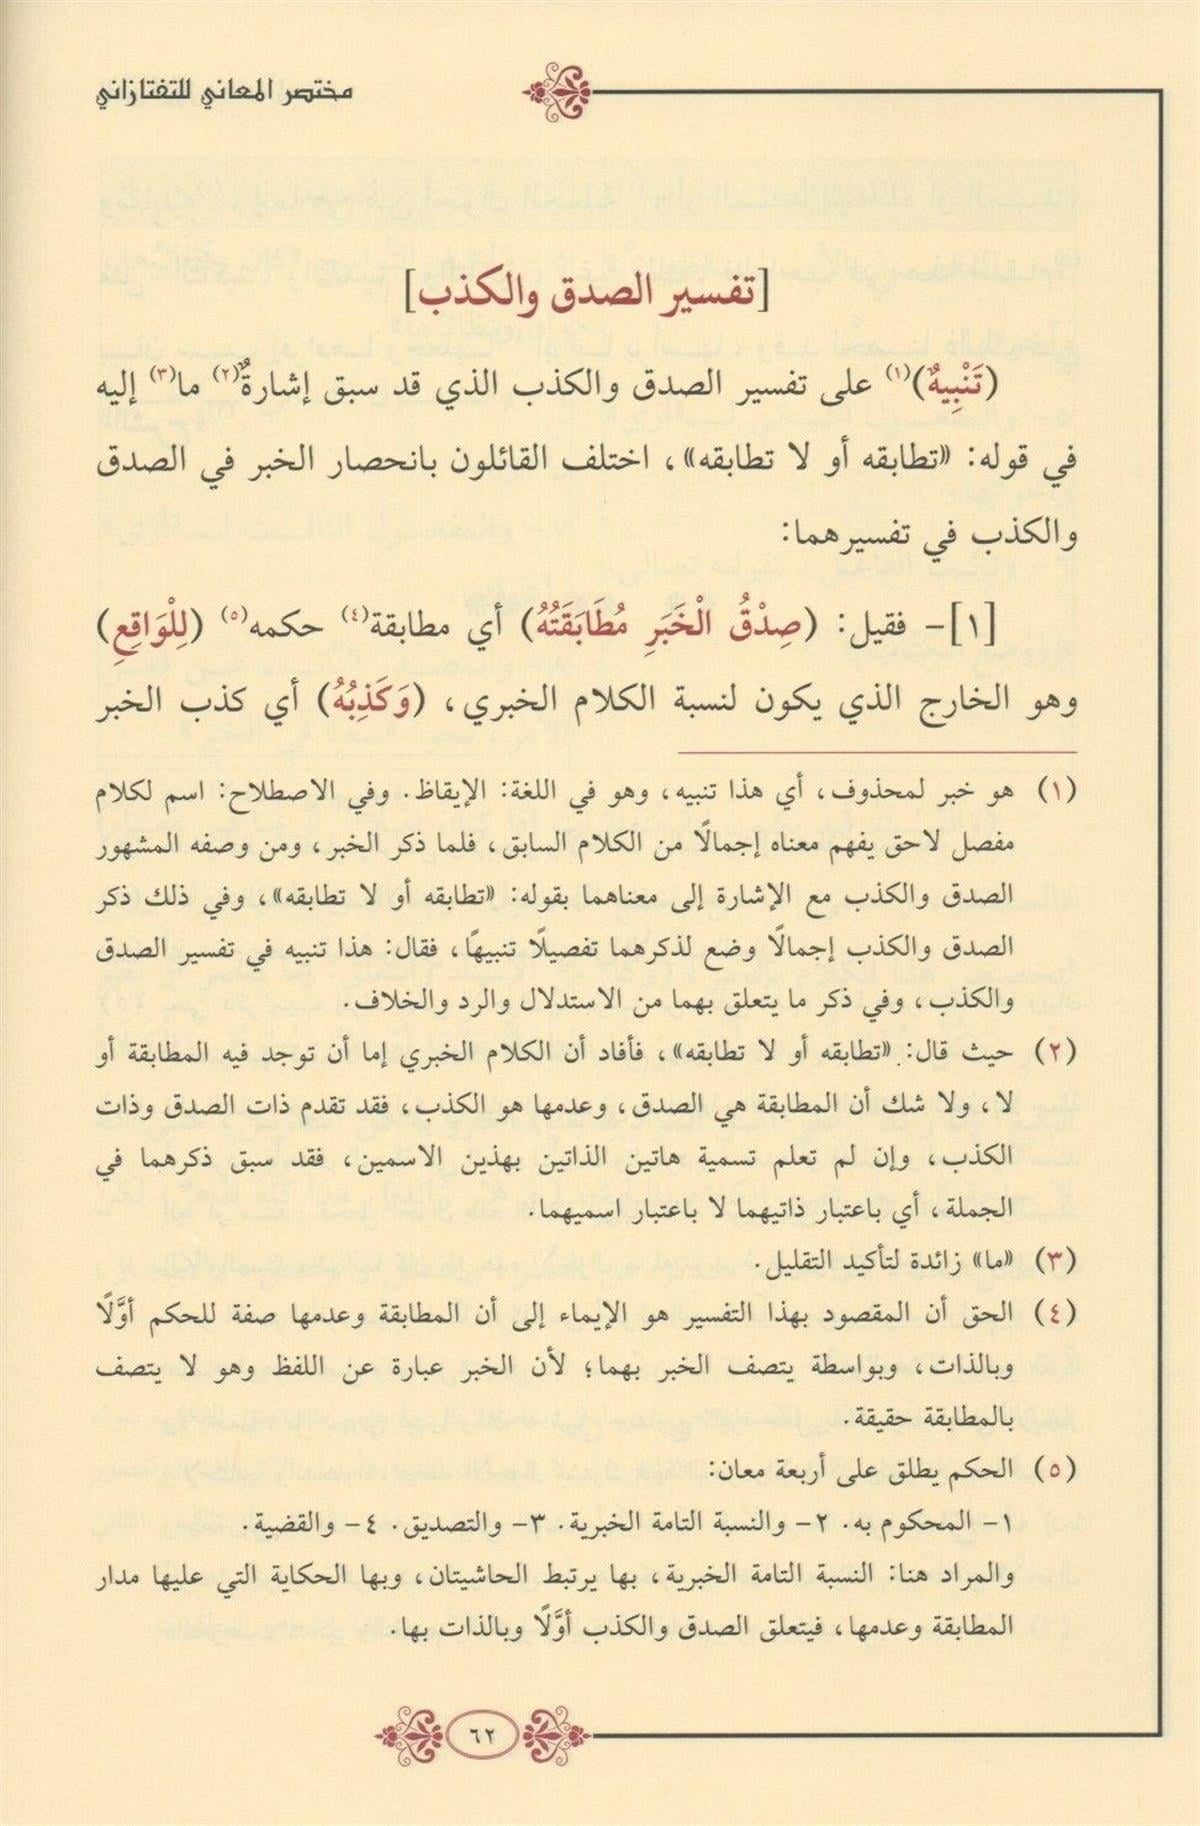 مختصر المعاني للتفتازاني
[تفسير الصدق والكذب]
(تَنْبِيهٌ)(١) على تفسير الصدق والكذب الذي قد سبق إشارةٌ(٢) ما(٣) إليه
في قوله: «تطابقه أو لا تطابقه»، اختلف القائلون بانحصار الخبر في الصدق
والكذب في تفسيرهما:
[١]- فقيل: (صِدْقُ الْخَبَرِ مُطَابَقَتُهُ) أي مطابقة(٤) حكمه(٥) (لِلْوَاقِعِ)
وهو الخارج الذي يكون لنسبة الكلام الخبري، (وَكَذِبُهُ) أي كذب الخبر
(١) هو خبر لمحذوف، أي هذا تنبيه، وهو في اللغة: الإيقاظ. وفي الاصطلاح: اسم لكلام
مفصل لاحق يفهم معناه إجمالًا من الكلام السابق، فلما ذكر الخبر، ومن وصفه المشهور
الصدق والكذب مع الإشارة إلى معناهما بقوله: «تطابقه أو لا تطابقه»، وفي ذلك ذكر
الصدق والكذب إجمالًا وضع لذكرهما تفصيلًا تنبيهًا، فقال: هذا تنبيه في تفسير الصدق
والكذب، وفي ذكر ما يتعلق بهما من الاستدلال والرد والخلاف.
(٢) حيث قال: «تطابقه أو لا تطابقه»، فأفاد أن الكلام الخبري إما أن توجد فيه المطابقة أو
لا، ولا شك أن المطابقة هي الصدق، وعدمها هو الكذب، فقد تقدم ذات الصدق وذات
الكذب، وإن لم تعلم تسمية هاتين الذاتين بهذين الاسمين، فقد سبق ذكرهما في
الجملة، أي باعتبار ذاتيهما لا باعتبار اسميهما.
(٣) «ما» زائدة لتأكيد التقليل.
(٤) الحق أن المقصود بهذا التفسير هو الإيماء إلى أن المطابقة وعدمها صفة للحكم أوَّلًا
وبالذات، وبواسطة يتصف الخبر بهما؛ لأن الخبر عبارة عن اللفظ وهو لا يتصف
بالمطابقة حقيقة.
(٥) الحكم يطلق على أربعة معان:
١- المحكوم به. ٢- والنسبة التامة الخبرية. ٣- والتصديق. ٤- والقضية.
والمراد هنا: النسبة التامة الخبرية، بها يرتبط الحاشيتان، وبها الحكاية التي عليها مدار
المطابقة وعدمها، فيتعلق الصدق والكذب أوَّلًا وبالذات بها.
٦٢